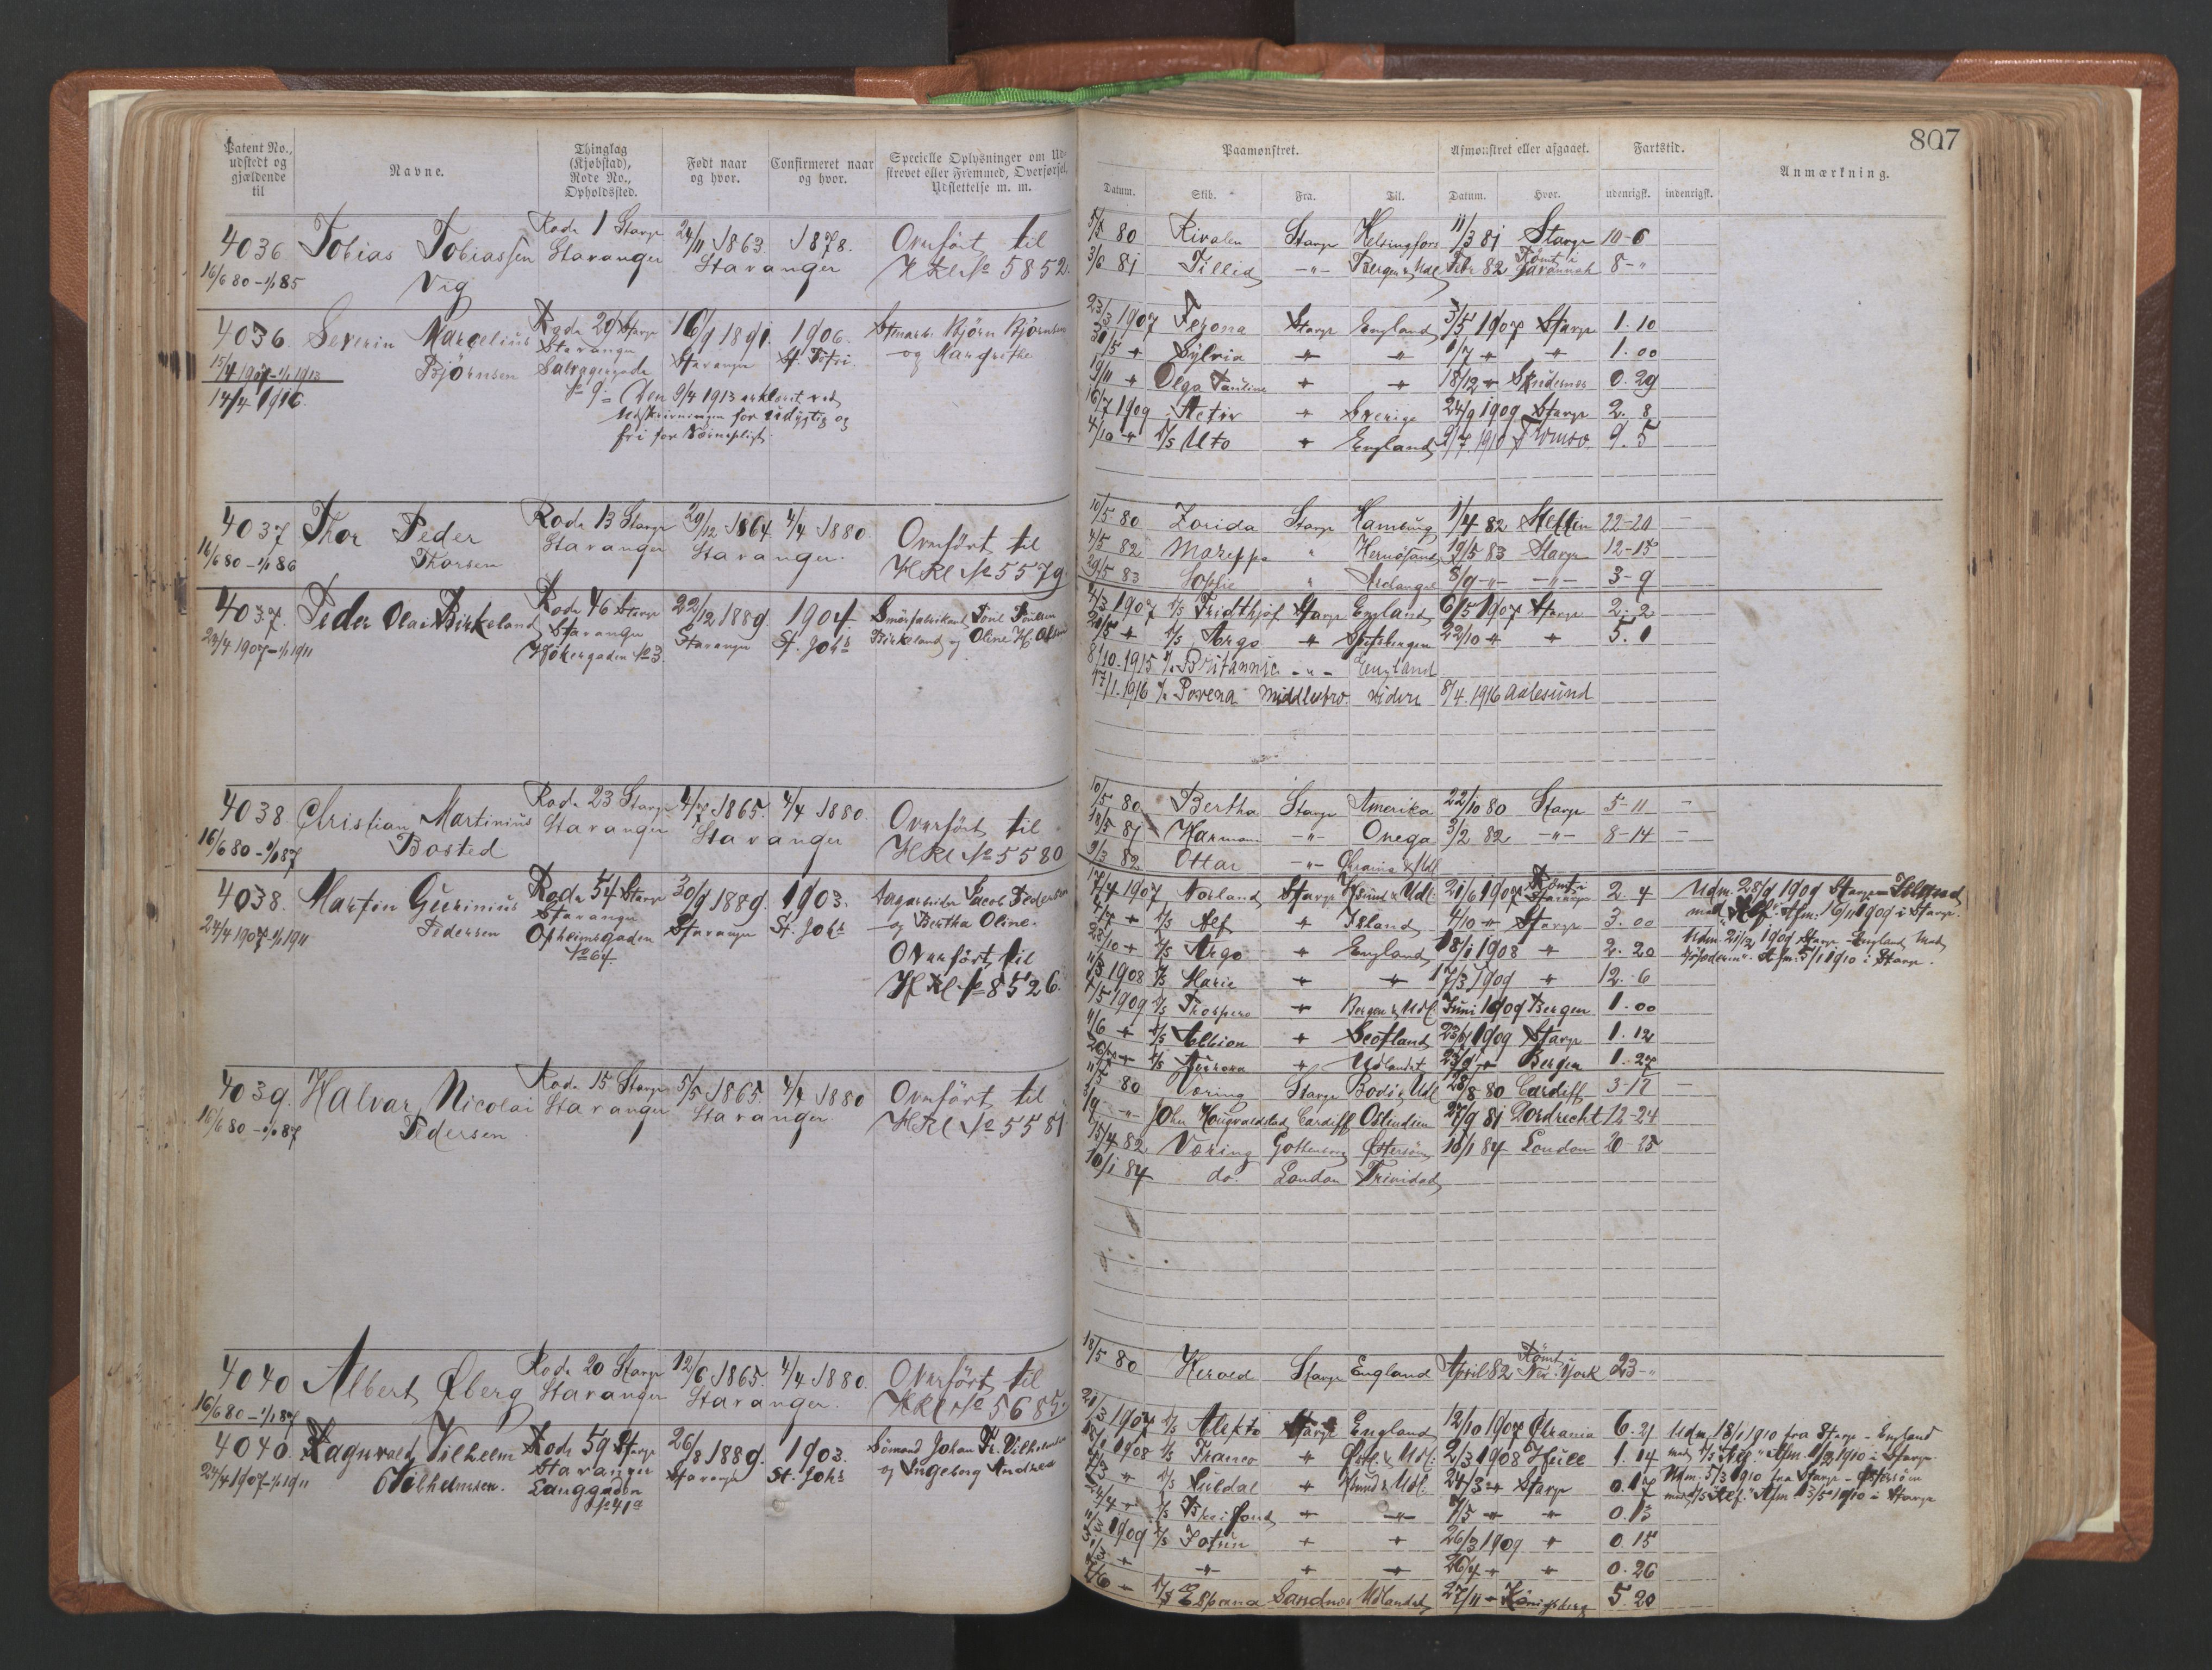 807
Patent No., udstedt og gjældende til
Navne.
Thinglag (Kjøbstad), Rode No., Opholdssted.
Født naar og hvor.
Confirmeret naar og hvor.
Specielle Oplysninger om Udstrevet eller Fremmed, Overførsel, Udslettelse m. m.
Paamønstret.
Afmønstret eller afgaaet.
Fartstid.
Anmærkning.
Datum. Skib. Fra. Til. Datum. Hvor. udenrigsk. indenrigsk.
4036 Tobias Tobiassen Rode 1 Stavgr 24/11 1863. 1878. Overført til
16/6 80 - 1/1 85 Vig Stavanger Stavanger HRl No 5852.
5/5 80 Rivalen Stavgr Helsingfors 11/3 81 Stavgr 10-6
3/6 81 Tillid -"- Bergen & Udl Febr 82 Rømt i Savannah 8-"
4036. Severin Marcelius Rode 29 Stavgr 16/9 1891. 1906. Bjørn Bjørnsen
15/4 1907 - 1/1 1913 Bjørnsen Stavanger Stavanger St. Petri og Margrethe
14/4 1916.
No 9. Den 9/4 1913 erklæret ved
Udskrivningen for udygtig og
fri for Værnepligt.
23/3 1907 Stavgr England 3/5 1907 Stavgr 1. 10
31/5 " Sylvia " " 1/7 " " 1. 00
19/11 " Olga Pauline " " 18/12 " Skudesnes 0. 29
16/7 1909 Activ " Sverige 24/9 1909 Stavgr 2. 8
4/10 " D/S Uto " England 9/7 1910 Tromsø 9. 5
4037 Thor Peder Rode 13 Stavgr 29/12 1864. 4/4 1880. Overført til
16/6 80 - 1/1 86 Thorsen Stavanger Stavanger. HRl No 5579
10/5 80 Zorida Stavgr Hamburg 1/4 82 Stettin 22-20
4/5 82 " Hernøsand 19/5 83 Stavgr 12-15
29/5 83 Sophie " Archangel 8/9 -"- -"- 3-9
4037. Peder Olai Birkeland Rode 46 Stavgr 22/12 1889. 1904.
24/4 1907 - 1/1 1911 Stavanger Stavanger St. Johs Birkeland og Oline H. Olsen
No 3.
4/3 1907 D/S Fridthjof Stavgr England 6/5 1907 Stavgr 2. 2
20/5 " D/S Argo " Spitsbergen 22/10 " " 5. 1
8/10-1915 Britannic -"- England
17/1-1916 Middlesbro. videre 8/4. 1916 Aalesund
4038. Christian Martinius Rode 23 Stavgr 4/7 1865. 4/4 1880. Overført til
16/6 80 - 1/1 87 Bosted Stavanger Stavanger HRl No 5580
10/5 80 Bertha Stavgr Amerika 22/10 80 Stavgr 5-11
18/5 81 -"- Onega 3/2 82 -"- 8-14
9/3 82 Ottar -"- Chrania & Udl
4038. Martin Gurinius Rode 54 Stavgr 30/9 1889. 1903. Jacob Pedersen
24/4 1907 - 1/1 1911 Pedersen Stavanger Stavanger St. Johs og Bertha Oline.
Opheimsgaden Overført til
No 64. HRl No 8526.
17/4 1907 Norland Stavgr 21/6 1907 Rømt i Stavanger 2. 4
D/S Alf " Island 4/10 " Stavgr 3. 00
23/10 " D/S Argo " England 18/1 1908 " 2. 20
1908 D/S Marie " " 17/3 1909 " 12. 6
1909 D/S Prospero " Bergen & Udl. Juni 1909 Bergen 1. 00
4/6 " D/S Albion " Scotland 1909 Stavgr 1. 12
" Udlandet " Bergen 1. 27
Udm. 28/9 1909 Stavgr - Island
med "Alf". Afm. 16/11 1909 i Stavgr.
Udm. 21/12 1909 Stavgr - England med
Afm. 5/1 1910 i Stavgr.
4039. Halvar Nicolai Rode 15 Stavgr 5/5 1865. 4/4 1880 Overført til
16/6 80 - 1/1 87 Pedersen Stavanger Stavanger. HRl No 5581
11/5 80 Væring Stavgr Bodø & Udl 28/8 80 Cardiff 3-17
-"- John Cardiff Ostindien 27/9 81 Dordrecht 12-24
15/4 82 Væring Gothenborg Østersøen 10/1 84 London 20-25
10/1 84 do. London Trinidad
4040 Albert Øberg Rode 20 Stavgr 12/6 1865. 4/4 1880. Overført til
16/6 80 - 1/1 87 Stavanger Stavanger. HRl No 5685.
18/5 80 Herold Stavgr England April 82 Rømt i New York 23-"
4040. Ragnvald Vilhelm Rode 59 Stavgr 26/8 1889. 1903. Sømand Johan Fr. Vilhelmsen
24/4 1907 - 1/1 1911 Vilhelmsen. Stavanger Stavanger St. Johs og Ingeborg Andrea
Langgaden
No 41a
21/3 1907 D/S Alekto Stavgr England 12/10 1907 Chrania 6. 21
1908 D/S Franco " 2/3 1908 Hull 1. 14
D/S Suldal " 24/3 " Stavgr 0. 17
D/S " -"- 7/5 " " 0. 13
11/3 1909 D/S Jotun " " 26/3 1909 " 0. 15
" " " 26/4 " " 0. 26
D/S Esperana Sandnes Udlandet 27/11 " Kønigsberg 5. 20
Udm. 18/1 1910 fra Stavgr - England
1910 i Stavgr.
Udm. 5/3 1910 fra Stavgr - Østersøen
med D/S "Alf". Afm. 13/5 1910 i Stavgr